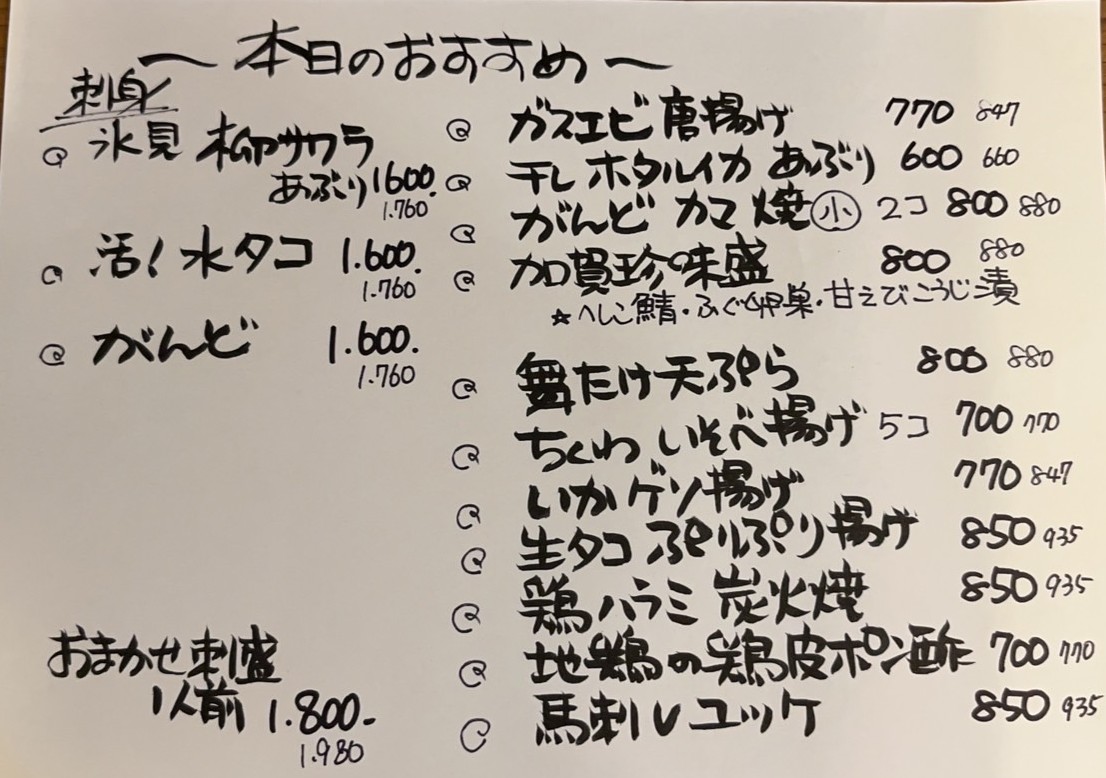 ～本日のおすすめ～
刺身
氷見 柳サワラ
あぶり 1600.
1.760
活！水タコ 1.600.
1.760
がんど 1.600.
1.760
おまかせ刺盛
1人前 1.800-
1.980
ガスエビ唐揚げ 770 847
干しホタルイカ あぶり 600 660
がんど カマ 焼 小 2コ 800 880
加賀珍味盛 800 880
☆へしこ鯖・ふぐ卵巣・甘えびこうじ漬
舞たけ天ぷら 800 880
ちくわ いそべ揚げ 5コ 700 770
いかゲソ揚げ 770 847
生タコ ぷりぷり揚げ 850 935
鶏ハラミ 炭火焼 850 935
地鶏の鶏皮ポン酢 700 770
馬刺しユッケ 850 935